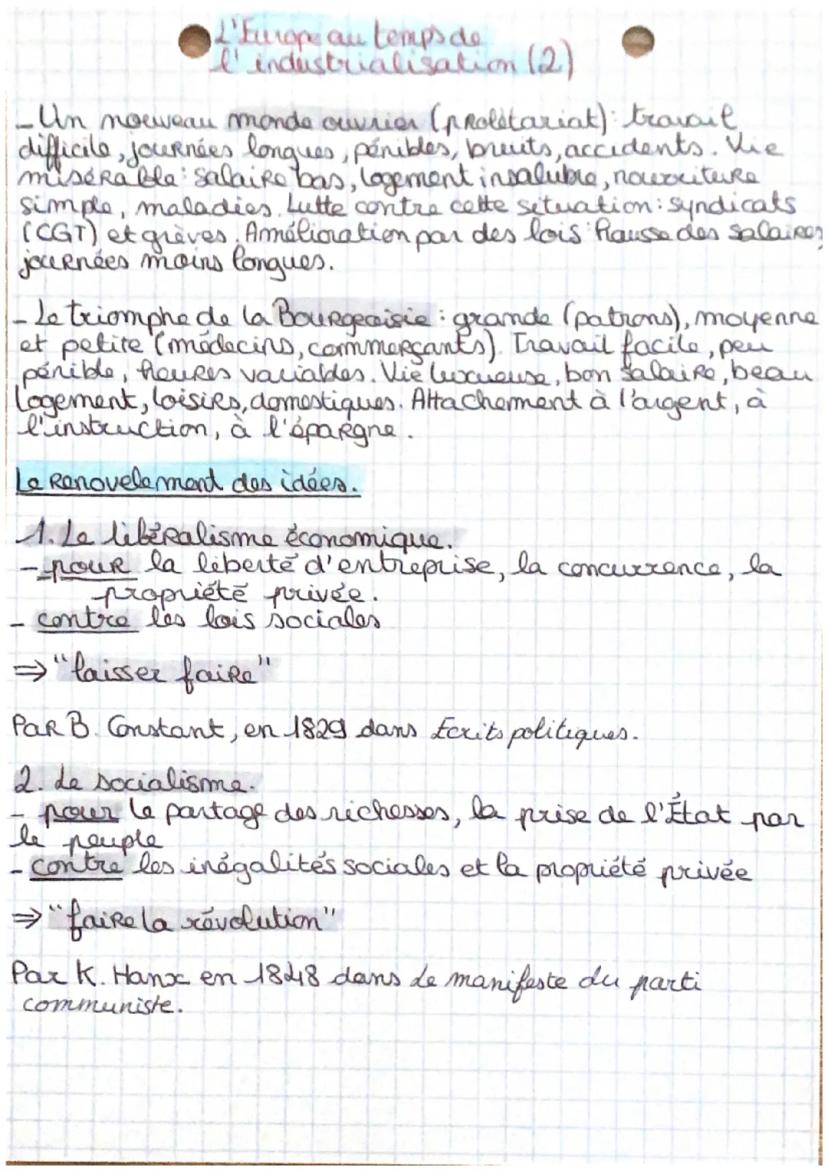 L'Europe au temps de
l'industrialisation (2)
- Un nouveau monde ouvrier (prolétariat) : travail
difficile, journées longues, pénibles, bruits, accidents. Vie
misérable : salaire bas, logement insalubre, nourriture
simple, maladies. Lutte contre cette situation : syndicats
(CGT) et grèves. Amélioration par des lois : hausse des salaires,
journées moins longues.
- Le triomphe de la Bourgeoisie : grande (patrons), moyenne
et petite (médecins, commerçants). Travail facile, peu
pénible, heures variables. Vie luxueuse, bon salaire, beau
logement, loisirs, domestiques. Attachement à l'argent, à
l'instruction, à l'épargne.
Le renouvelement des idées.
1. Le libéralisme économique.
- pour la liberté d'entreprise, la concurrence, la
propriété privée.
- contre les lois sociales
⇒ "laisser faire"
Par B. Constant, en 1829 dans Ecrits politiques.
2. Le socialisme.
- pour le partage des richesses, la prise de l'État par
le peuple
- contre les inégalités sociales et la propriété privée
⇒ "faire la révolution"
Par K. Marx en 1848 dans Le manifeste du parti
communiste.